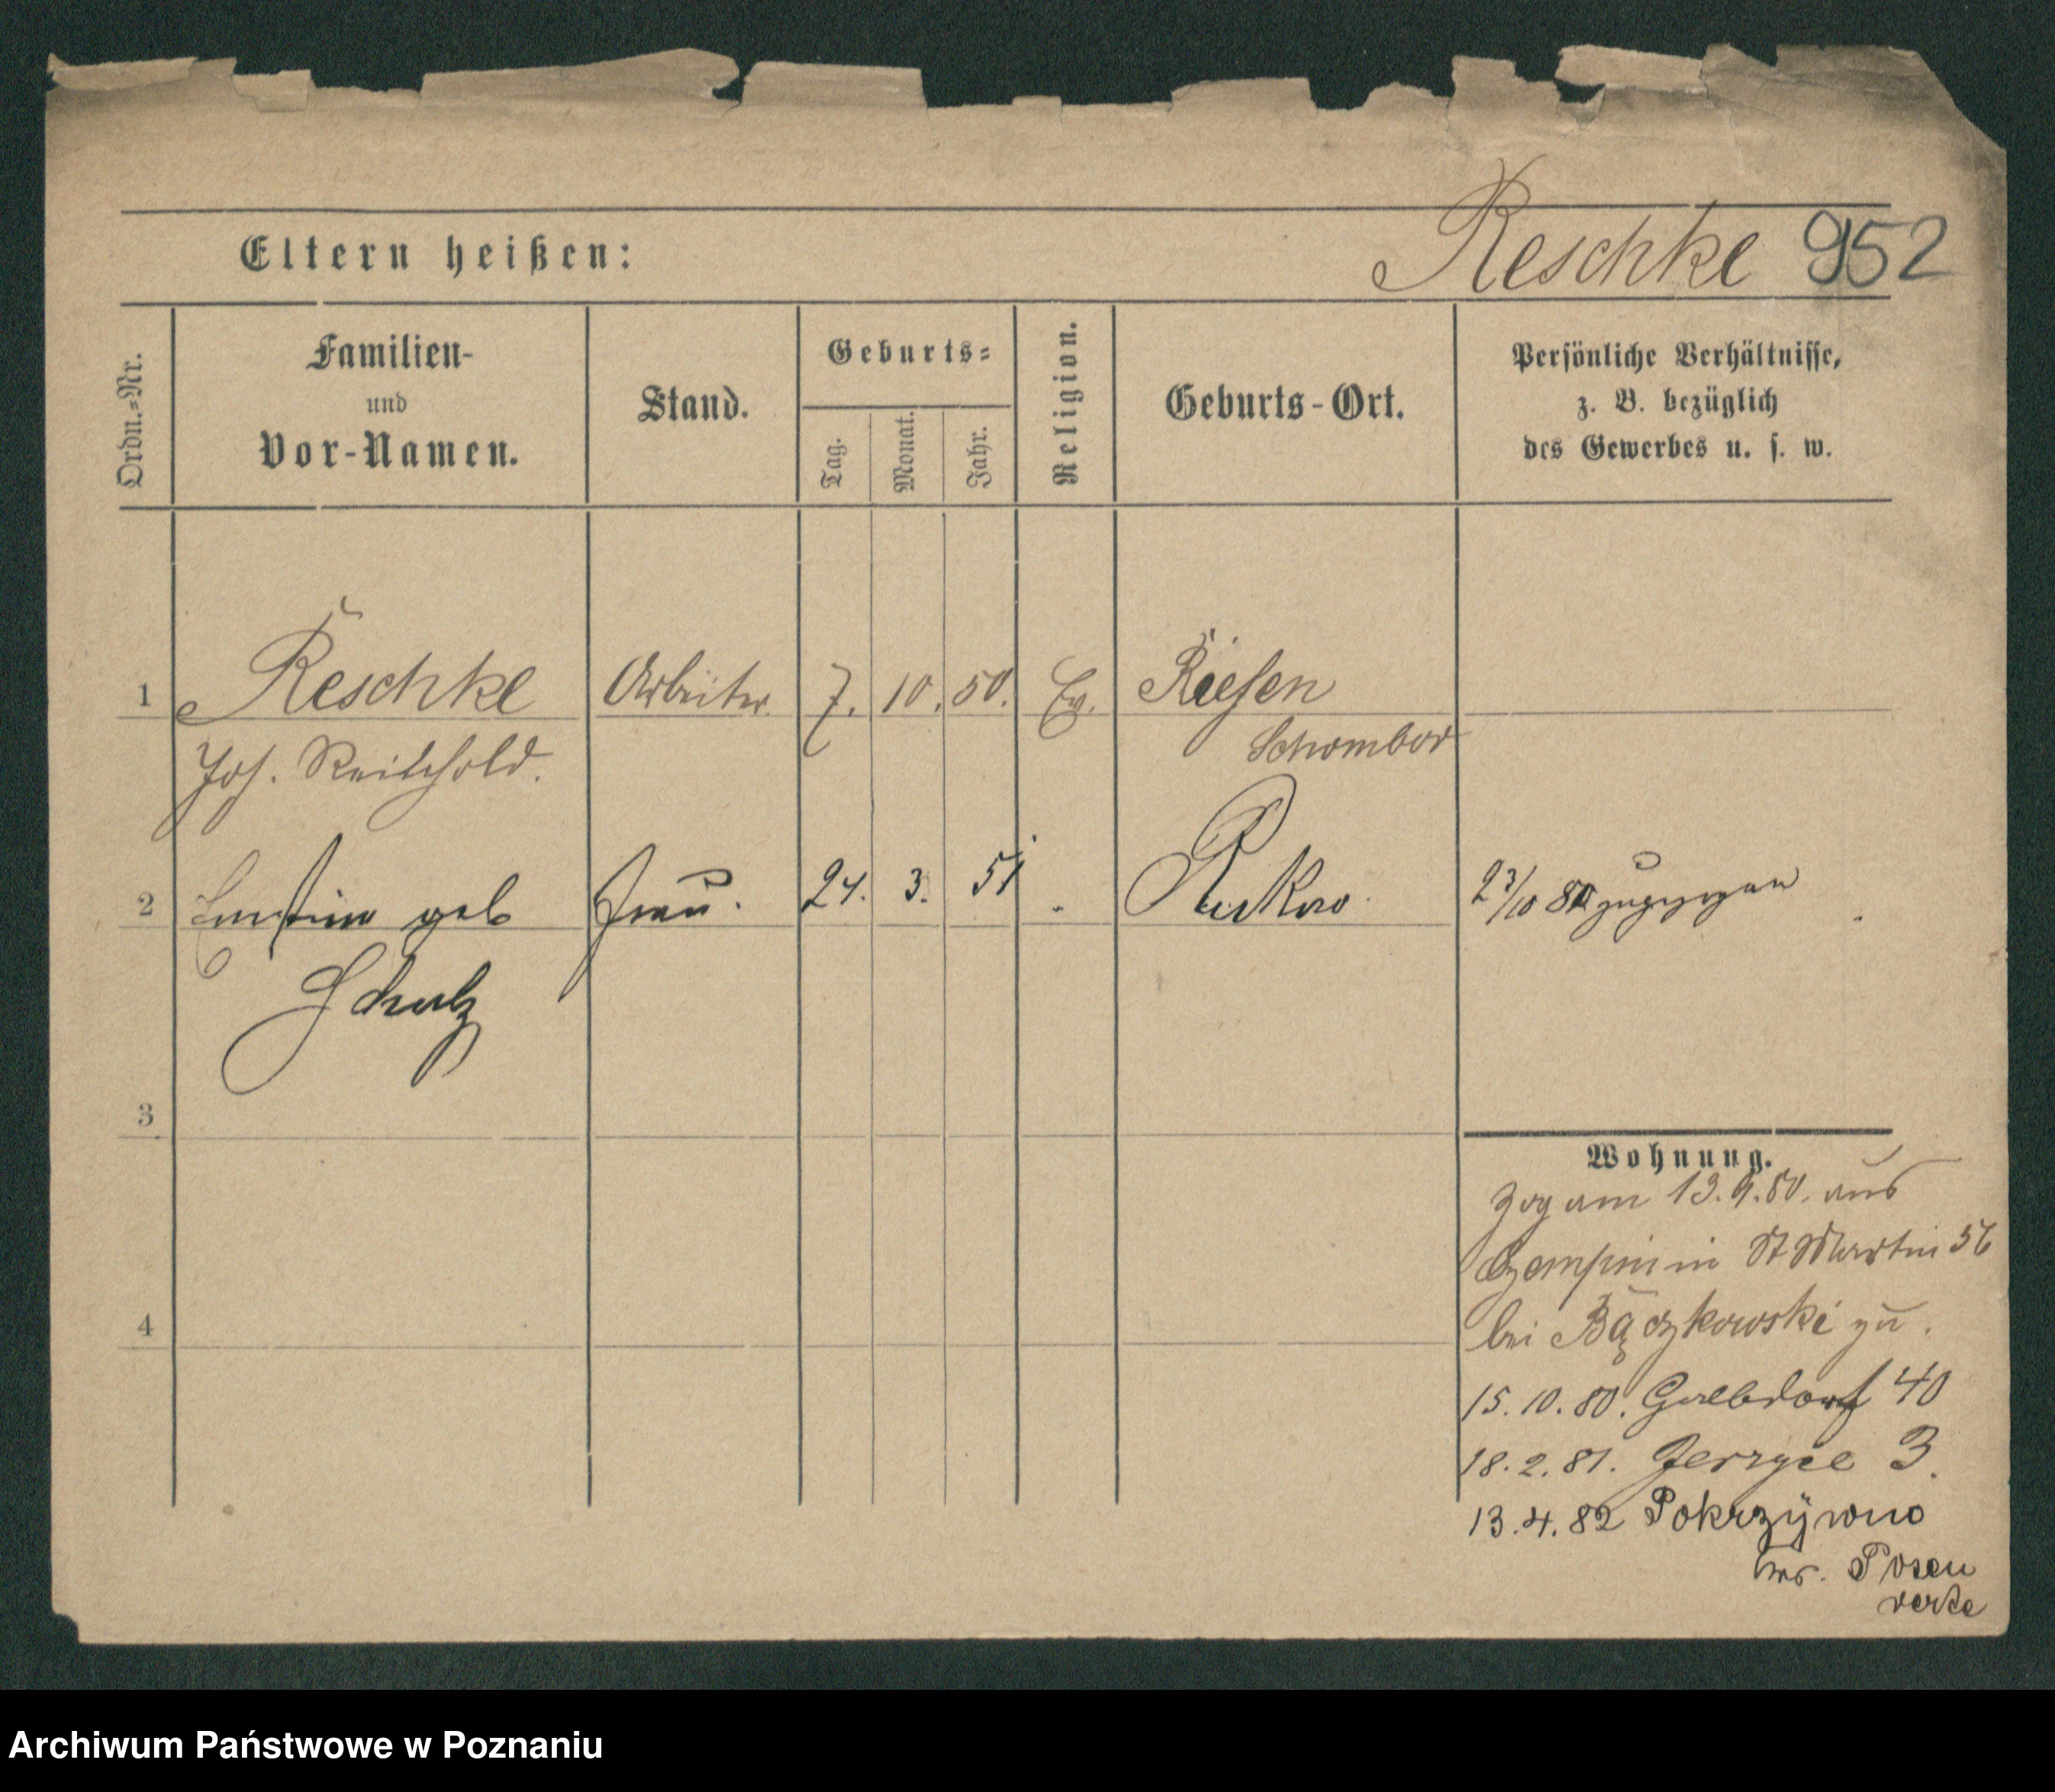 Reschke 952
Eltern heißen:
Ordn.=Nr.
Familien-
und
Vor-Namen.
Stand.
Geburts=
Tag.
Monat.
Jahr.
Religion.
Geburts-Ort.
Persönliche Verhältnisse,
z. B. bezüglich
des Gewerbes u. s. w.
1 Reschke Arbeiter 7. 10. 50. Ev. Riesen
Joh. Schombor
2 geb Frau. 24. 3. 51 23/10 80 zugezogen
Schulz
3
Wohnung.
Zog am 13. 9. 80. aus
Czempin in St Martin 56
bei Bączkowski zu.
4
15. 10. 80. 40
18. 2. 81. Jerzyce 3.
13. 4. 82 Pokrzÿwno
Posen
verte
Archiwum Państwowe w Poznaniu